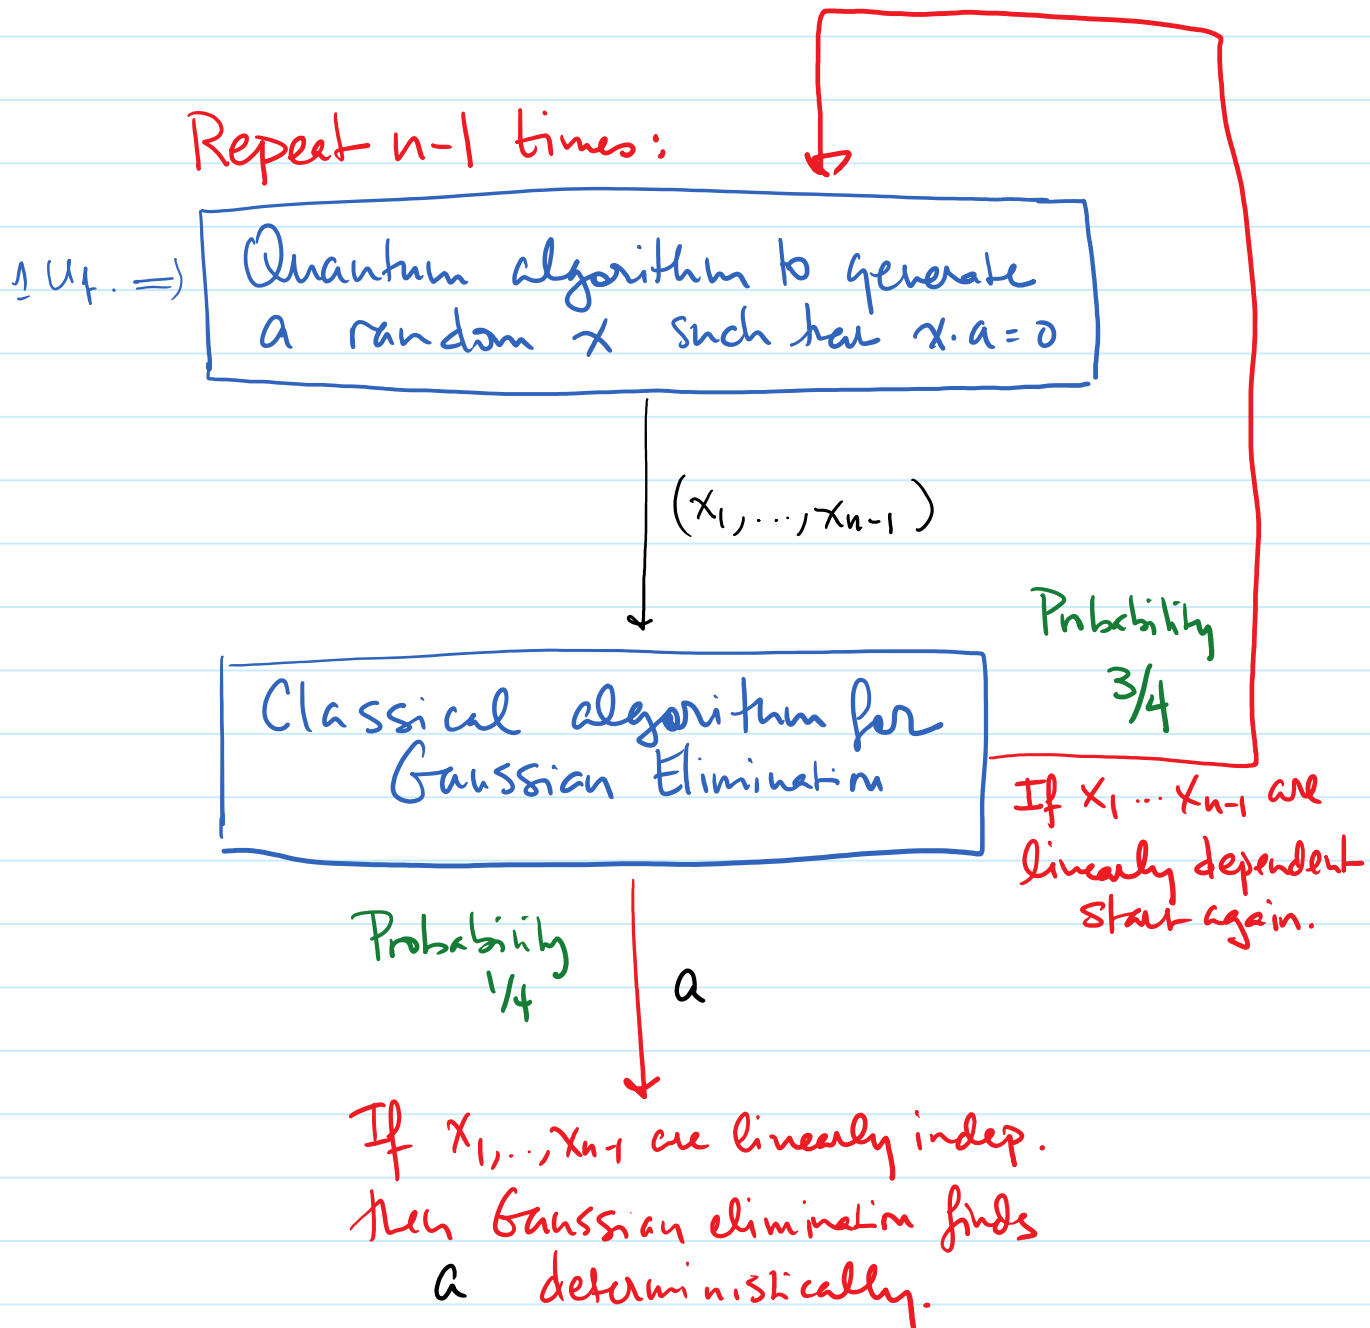 Repeat n-1 times:
1 Uf. ⇒
Quantum algorithm to generate
a random x such that x.a=0
(x₁,...,xₙ₋₁)
Classical algorithm for
Gaussian Elimination
Probability
3/4
If x₁...xₙ₋₁ are
linearly dependent
start again.
Probability
1/4
a
If x₁,..,xₙ₋₁ are linearly indep.
then Gaussian elimination finds
a deterministically.